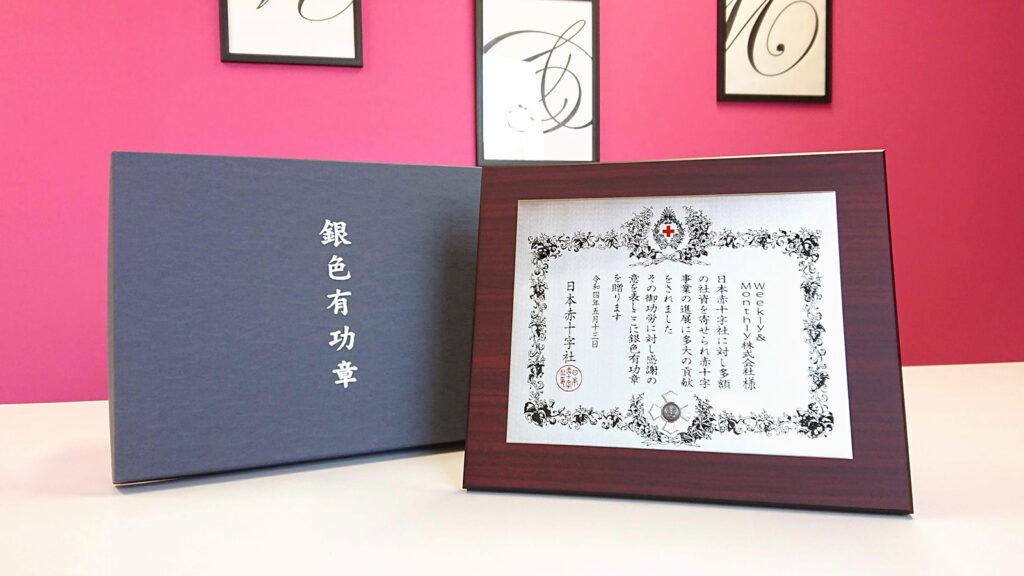 銀色有功章
Weekly&
Monthly株式会社様
日本赤十字社に対し多額
の社資を寄せられ赤十字
事業の進展に多大の貢献
をされました
その御功労に対し感謝の
意を表しここに銀色有功章
を贈ります
令和四年五月十三日
日本赤十字社